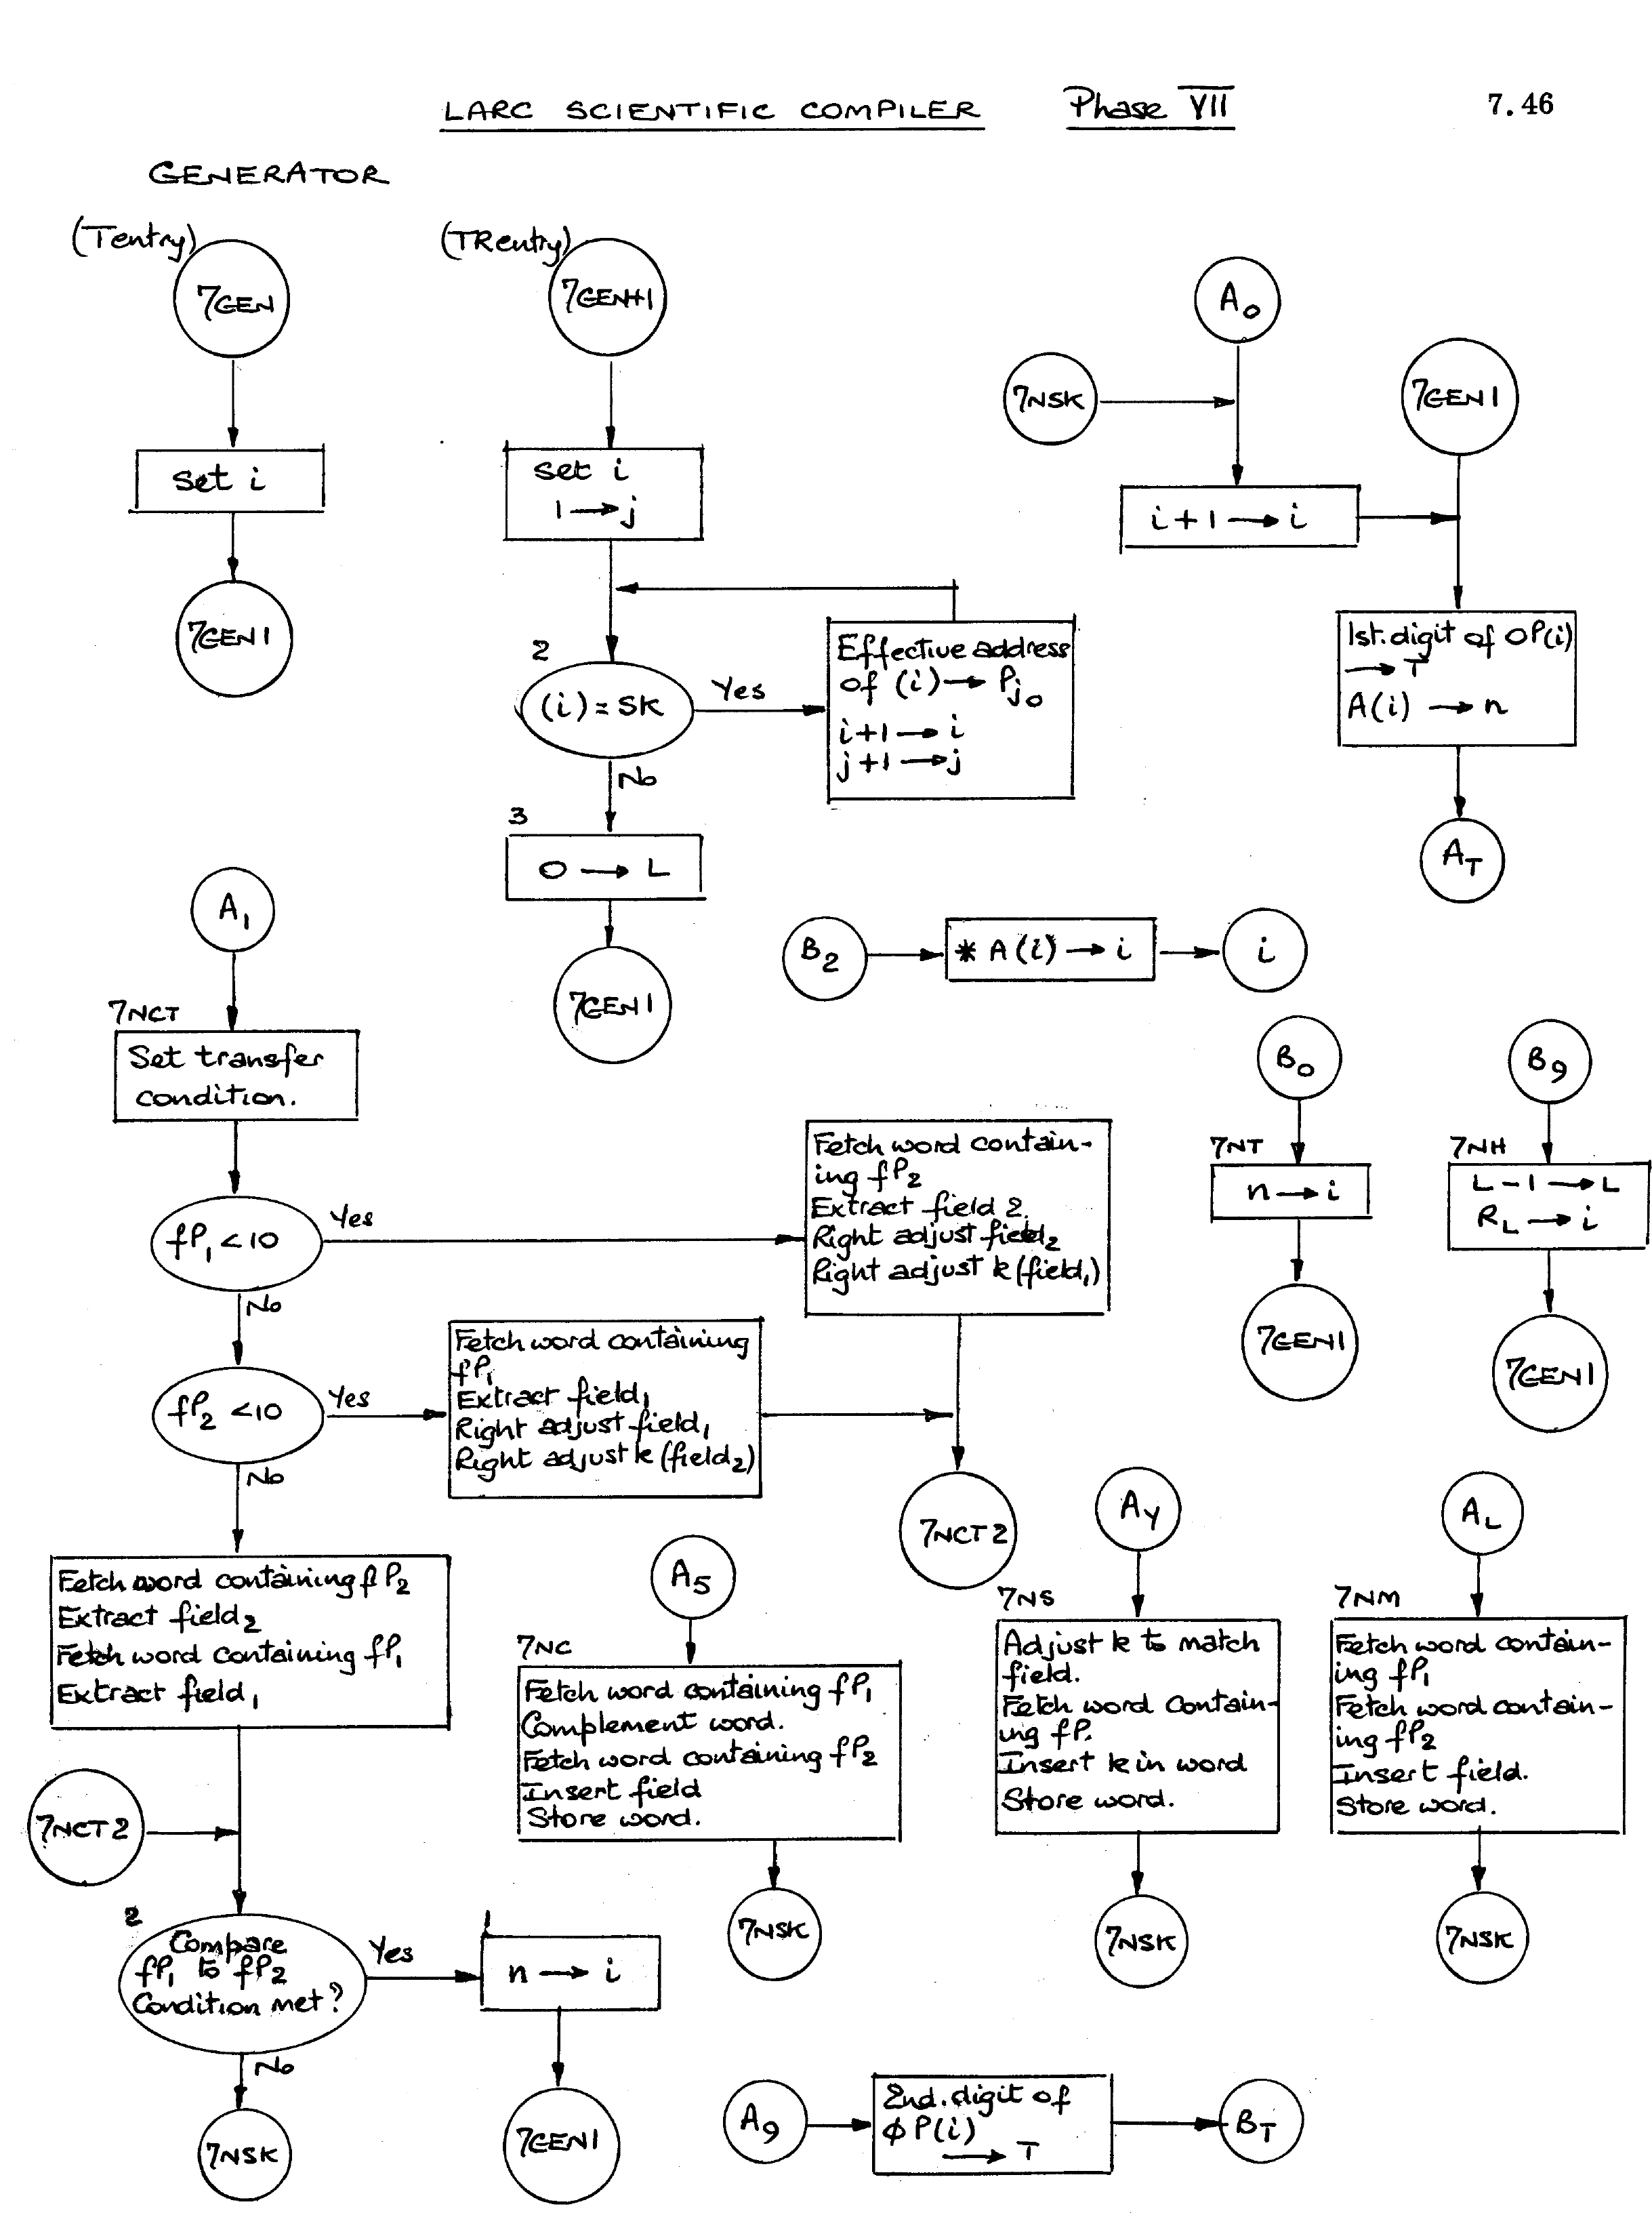 LARC SCIENTIFIC COMPILER Phase VII 7.46
GENERATOR
(Tentry)
7GEN
set i
7GEN1
(TRentry)
7GEN+1
set i
1 → j
2
(i) = SK
Yes
Effective address
of (i) → Pj0
i+1 → i
j+1 → j
No
3
0 → L
7GEN1
A0
7NSK
i+1 → i
7GEN1
1st. digit of OP(i)
→ T
A(i) → n
AT
B2
* A(i) → i
i
A1
7NCT
Set transfer
condition.
fP1 < 10
Yes
Fetch word contain-
ing fP2
Extract field 2.
Right adjust field2
Right adjust k (field1)
No
fP2 < 10
Yes
Fetch word containing
fP1
Extract field1
Right adjust field1
Right adjust k (field2)
7NCT2
No
Fetch word containing fP2
Extract field2
Fetch word containing fP1
Extract field1
7NCT2
2
Compare
fP1 to fP2
Condition met?
Yes
1
n → i
7GEN1
No
7NSK
B0
7NT
n → i
7GEN1
B9
7NH
L-1 → L
RL → i
7GEN1
A5
7NC
Fetch word containing fP1
Complement word.
Fetch word containing fP2
Insert field
Store word.
7NSK
AY
7NS
Adjust k to match
field.
Fetch word contain-
ing fP.
Insert k in word
Store word.
7NSK
AL
7NM
Fetch word contain-
ing fP1
Fetch word contain-
ing fP2
Insert field.
Store word.
7NSK
A9
2nd. digit of
ϕP(i)
→ T
BT